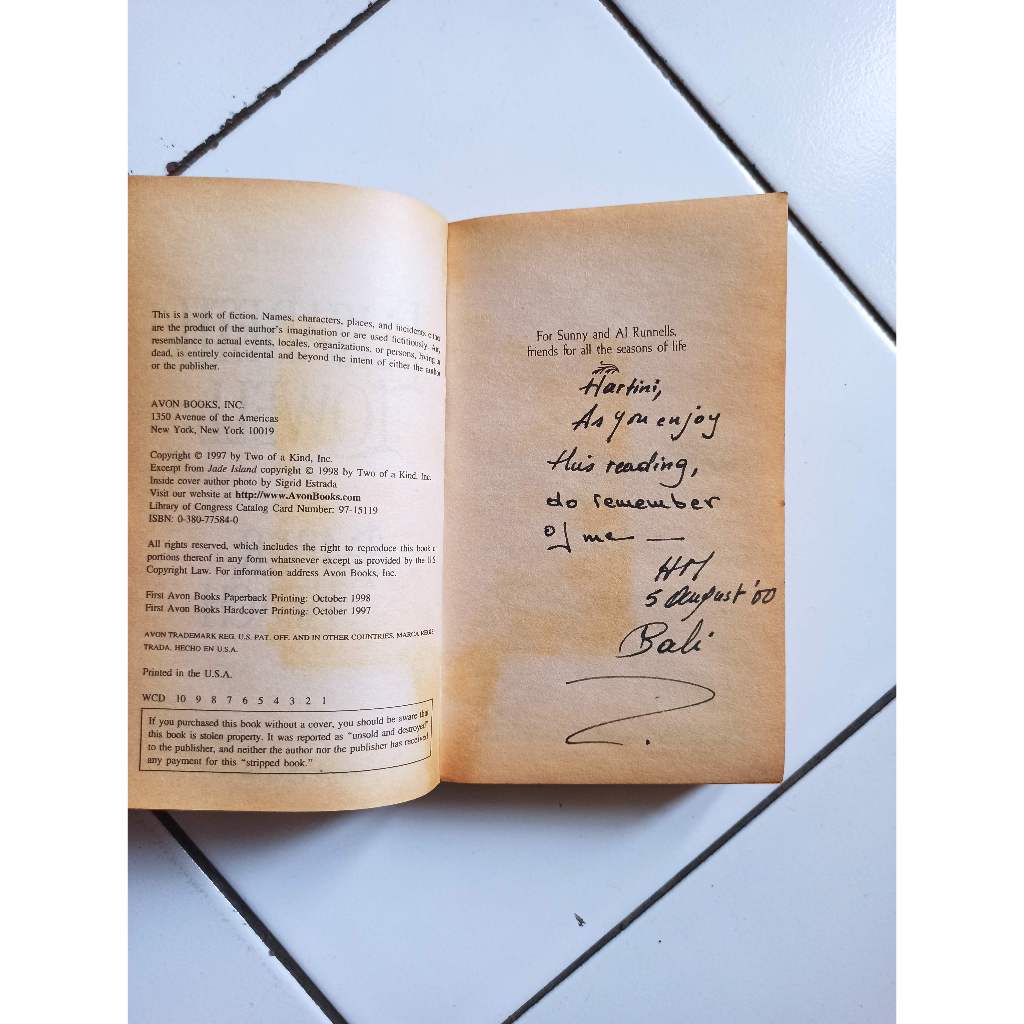 This is a work of fiction. Names, characters, places, and incidents either
are the product of the author's imagination or are used fictitiously. Any
resemblance to actual events, locales, organizations, or persons, living or
dead, is entirely coincidental and beyond the intent of either the author
or the publisher.
AVON BOOKS, INC.
1350 Avenue of the Americas
New York, New York 10019
Copyright © 1997 by Two of a Kind, Inc.
Excerpt from Jade Island copyright © 1998 by Two of a Kind, Inc.
Inside cover author photo by Sigrid Estrada
Visit our website at http://www.AvonBooks.com
Library of Congress Catalog Card Number: 97-15119
ISBN: 0-380-77584-0
All rights reserved, which includes the right to reproduce this book or
portions thereof in any form whatsoever except as provided by the U.S.
Copyright Law. For information address Avon Books, Inc.
First Avon Books Paperback Printing: October 1998
First Avon Books Hardcover Printing: October 1997
AVON TRADEMARK REG. U.S. PAT. OFF. AND IN OTHER COUNTRIES, MARCA REGIS-
TRADA, HECHO EN U.S.A.
Printed in the U.S.A.
WCD 10 9 8 7 6 5 4 3 2 1
If you purchased this book without a cover, you should be aware that
this book is stolen property. It was reported as "unsold and destroyed"
to the publisher, and neither the author nor the publisher has received
any payment for this "stripped book."
For Sunny and Al Runnells,
friends for all the seasons of life
Hartini,
As you enjoy
this reading,
do remember
of me —
HM
5 August '00
Bali